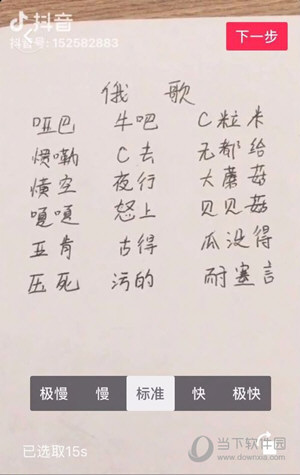 抖音
抖音号: 152582883
下一步
俄 歌
哑巴 牛吧 C粒米
惯嘞 C去 无都给
横空 夜行 大蘑菇
嘎嘎 怒上 贝贝菇
亚肯 古得 瓜没得
压死 污的 耐塞言
极慢 慢 标准 快 极快
已选取15s
当下软件园
www.downxia.com